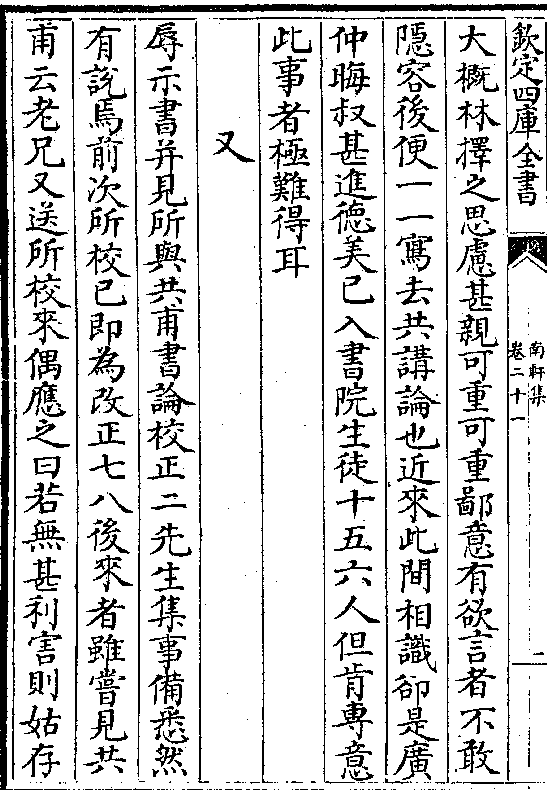 欽定四庫全書
南軒集
卷二十一
二
大概林擇之思慮甚親可重可重鄙意有欲言者不敢
隱容後便一一寫去共講論也近來此間相識卻是廣
仲晦叔甚進德美已入書院生徒十五六人但肯専意
此事者極難得耳
又
辱示書并見所與共甫書論校正二先生集事備悉然
有說焉前次所校已即為改正七八後來者雖嘗見共
甫云老兄又送所校來偶應之曰若無甚利害則姑存